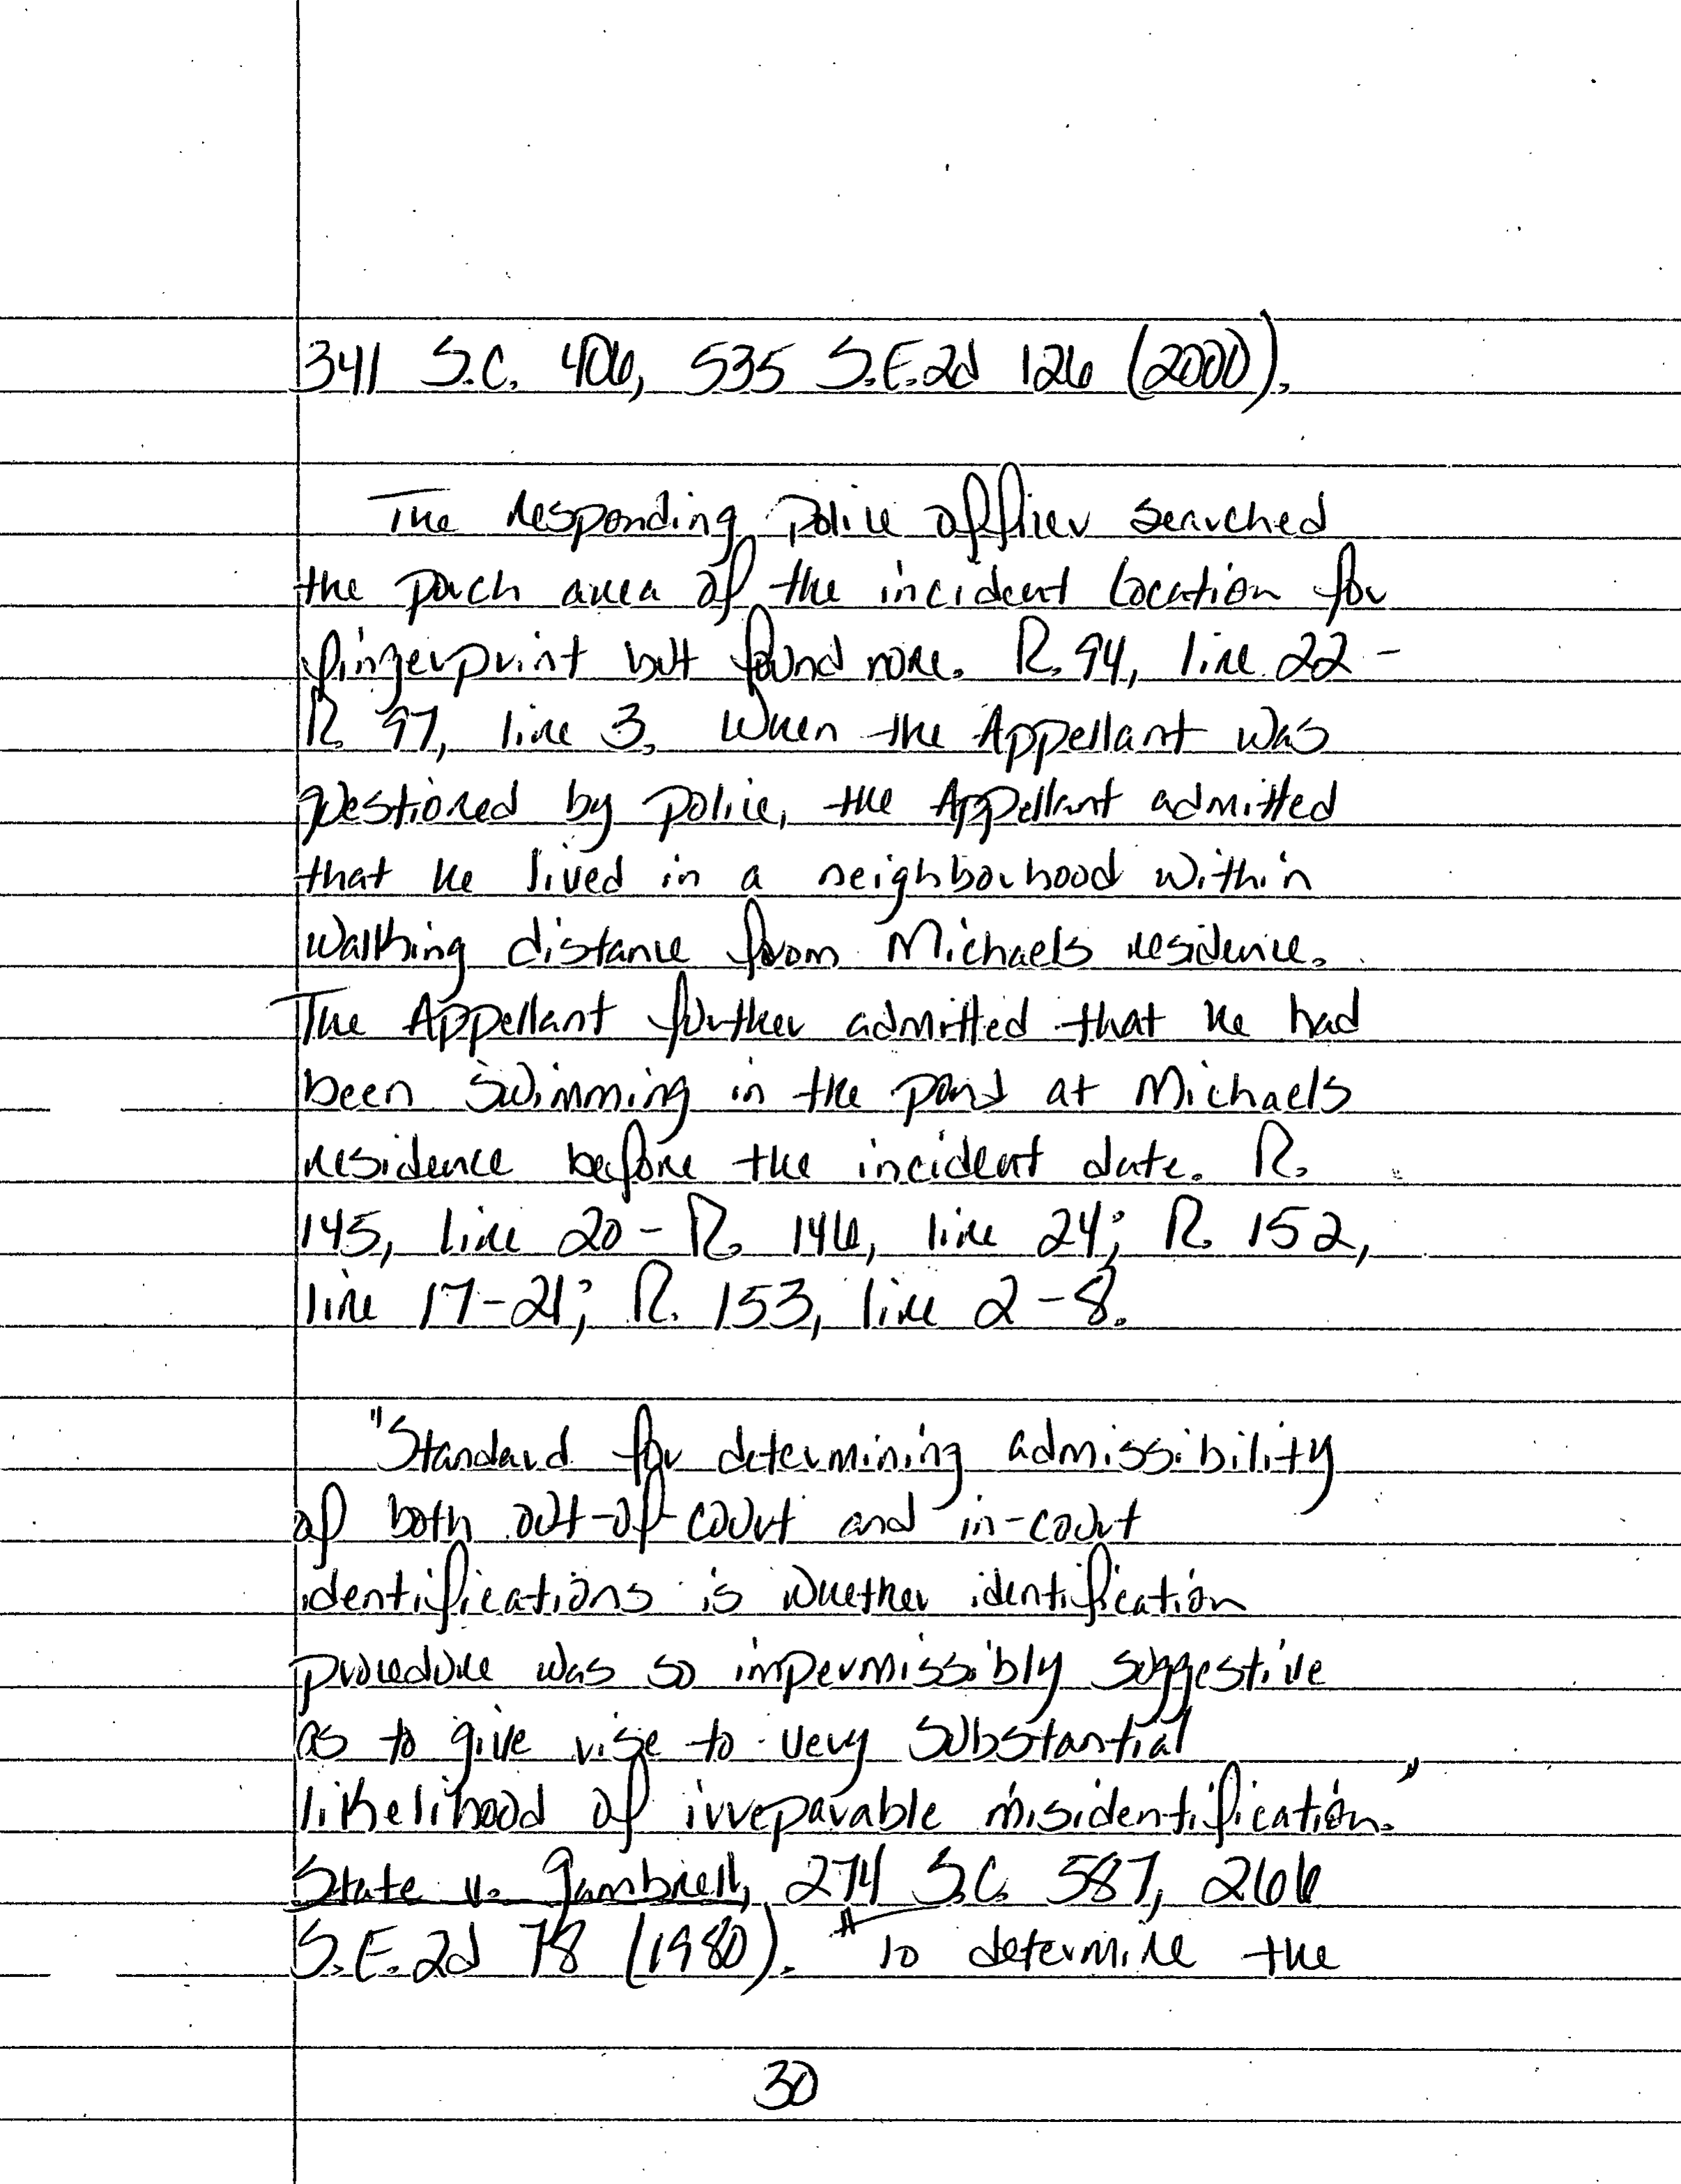 341 S.C. 406, 535 S.E.2d 126 (2000).
The responding police officer searched
the porch area of the incident location for
fingerprint but found none. R. 94, line 22 -
R. 97, line 3. When the Appellant was
questioned by police, the Appellant admitted
that he lived in a neighborhood within
walking distance from Michaels residence.
The Appellant further admitted that he had
been swimming in the pond at Michaels
residence before the incident date. R.
145, line 20 - R. 146, line 24; R. 152,
line 17-21; R. 153, line 2-8.
"Standard for determining admissibility
of both out-of-court and in-court
identifications is whether identification
procedure was so impermissibly suggestive
as to give rise to very substantial
likelihood of irreparable misidentification."
State v. Gambrell, 274 S.C. 587, 266
S.E.2d 78 (1980). "To determine the
30